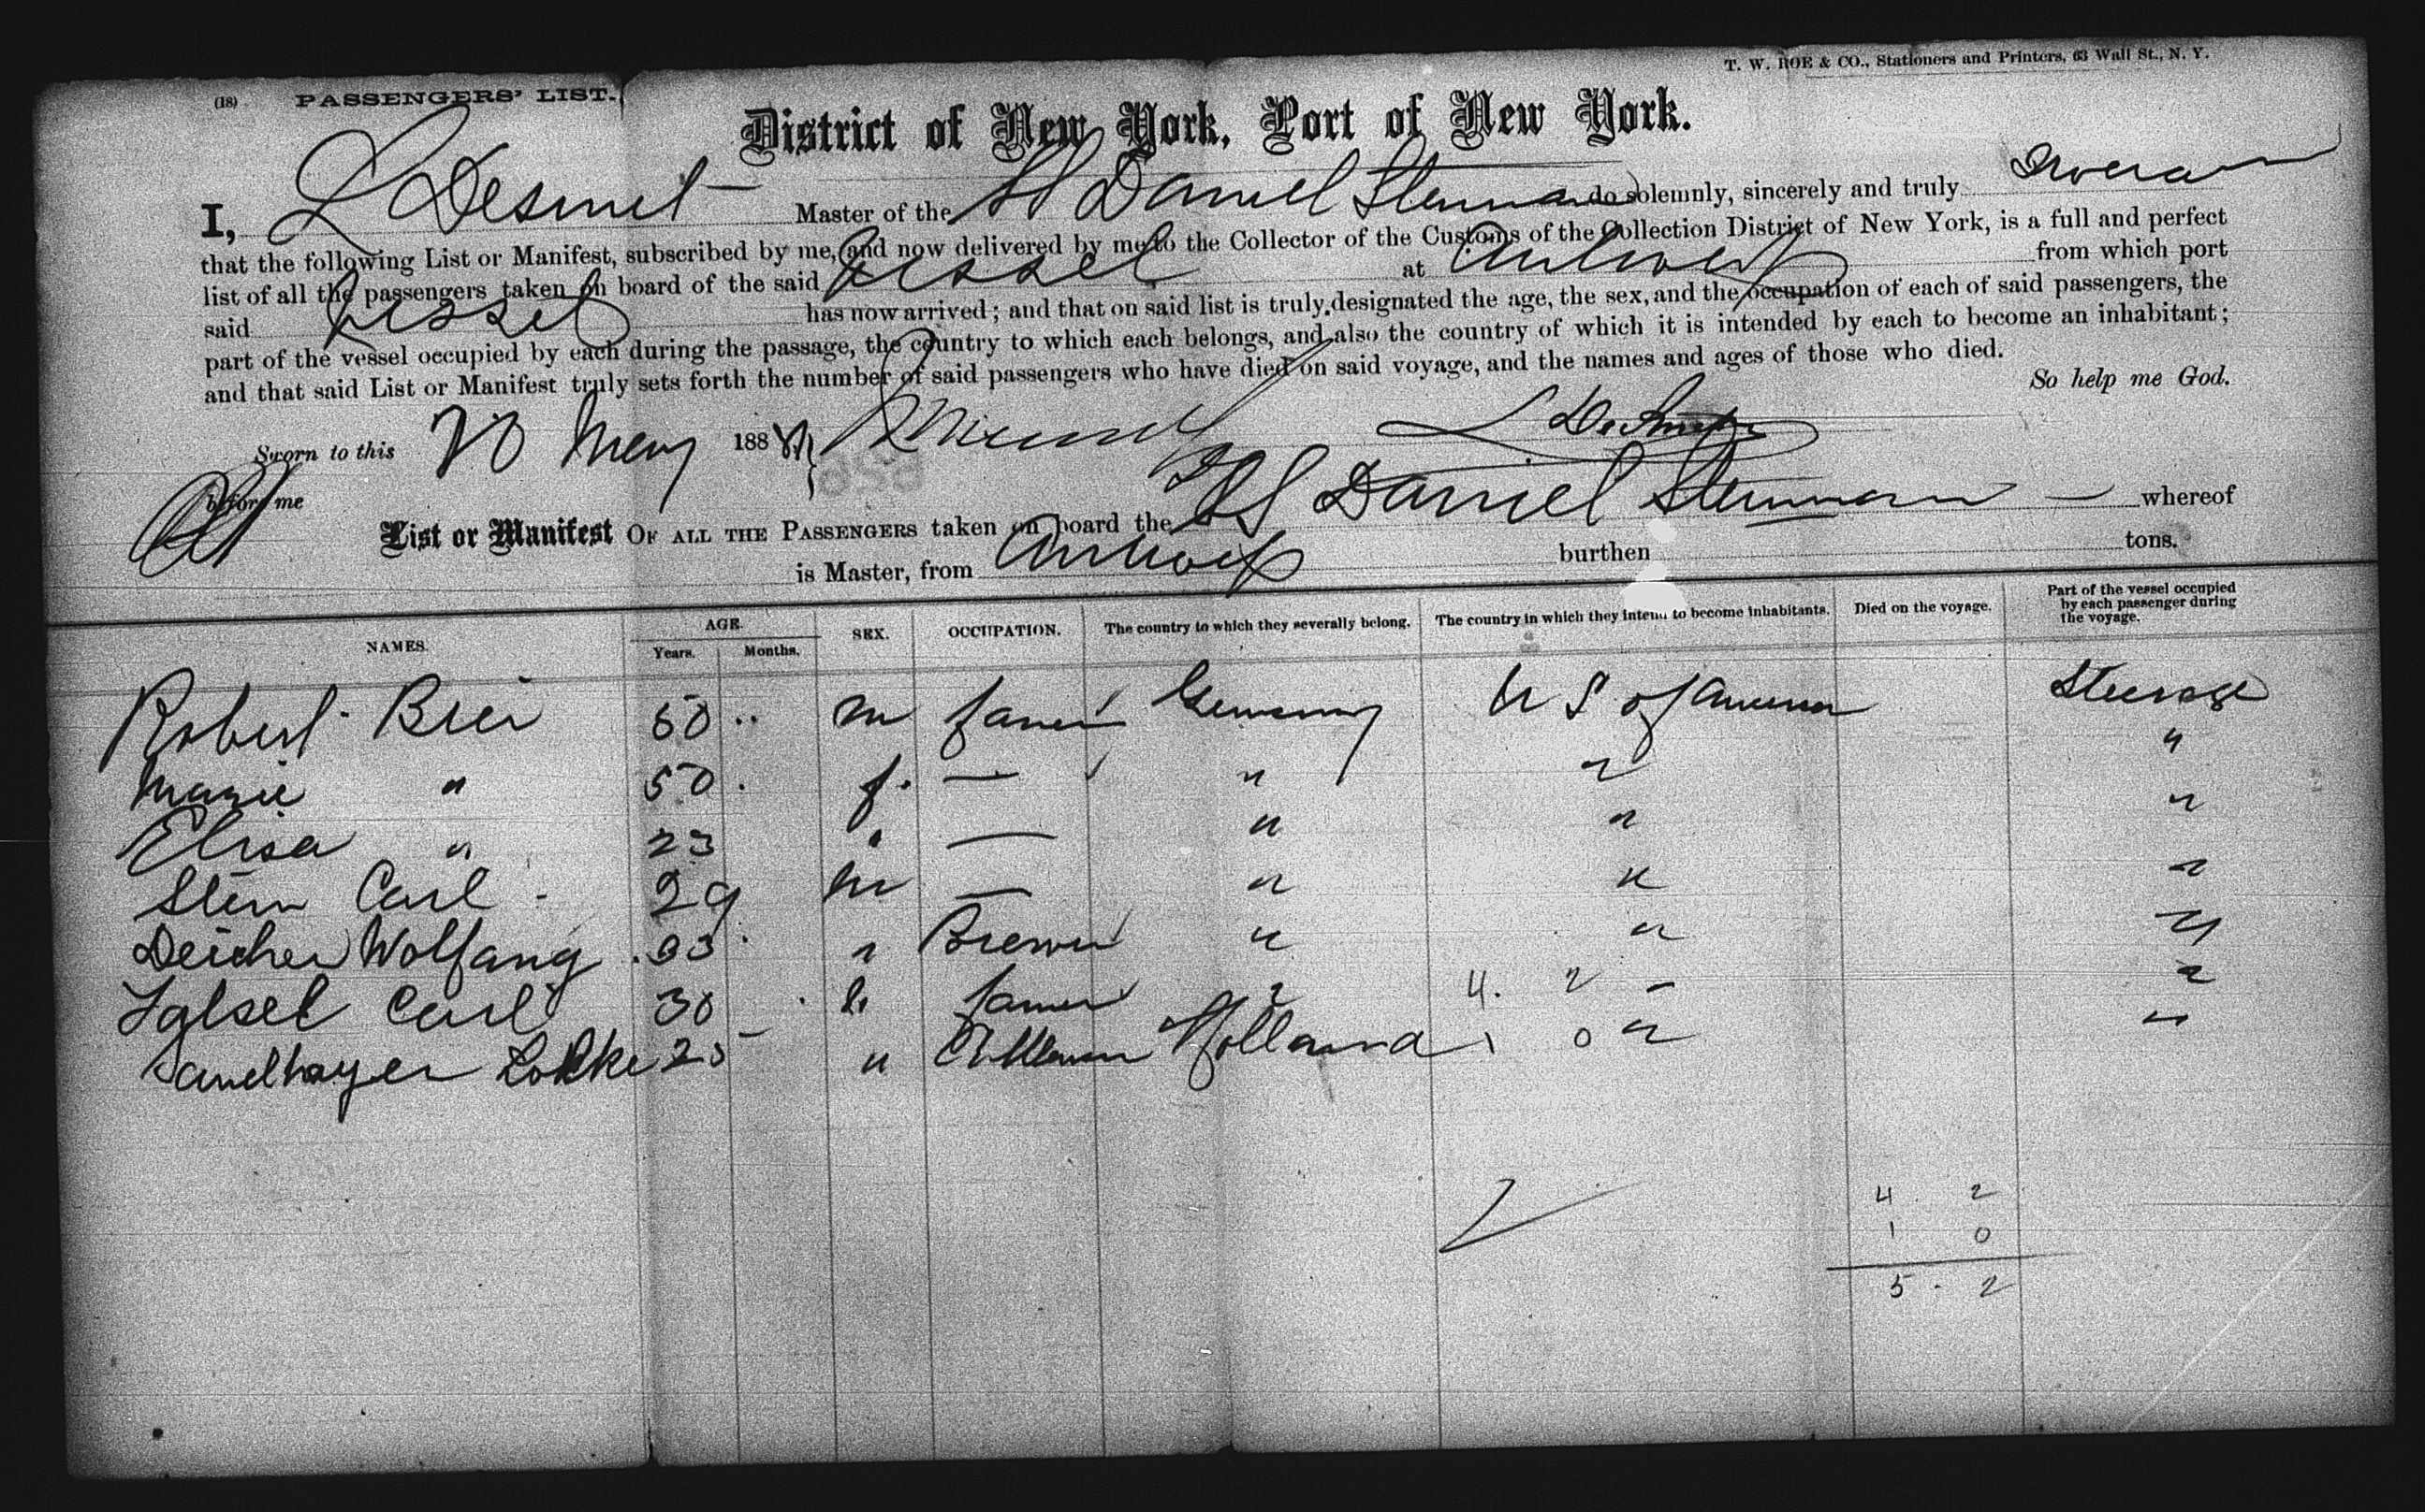 T. W. ROE & CO., Stationers and Printers, 63 Wall St., N. Y.
(18) PASSENGERS' LIST.
District of New York, Port of New York.
I, L Desmet Master of the SS Daniel Steinman do solemnly, sincerely and truly swear
that the following List or Manifest, subscribed by me, and now delivered by me to the Collector of the Customs of the Collection District of New York, is a full and perfect
list of all the passengers taken on board of the said vessel at Antwerp from which port
said vessel has now arrived; and that on said list is truly designated the age, the sex, and the occupation of each of said passengers, the
part of the vessel occupied by each during the passage, the country to which each belongs, and also the country of which it is intended by each to become an inhabitant;
and that said List or Manifest truly sets forth the number of said passengers who have died on said voyage, and the names and ages of those who died.
So help me God.
Sworn to this 20 May 188 L De Smet
before me
List or Manifest OF ALL THE PASSENGERS taken on board the SS Daniel Steinman whereof
is Master, from Antwerp burthen tons.
NAMES. AGE. Years. Months. SEX. OCCUPATION. The country to which they severally belong. The country in which they intend to become inhabitants. Died on the voyage. Part of the vessel occupied by each passenger during the voyage.
Robert Bier 50 .. m farmer Germany U S of America Steerage
Marie " 50 . f. — " " "
Elisa " 23 " — " " "
Stein Carl - 29 m — " " "
Deicher Wolfang 33 " Brewer " " "
Carl 30 " farmer " 4. 2 " "
25 " Holland 1 0 " "
4 . 2
1 0
5 . 2